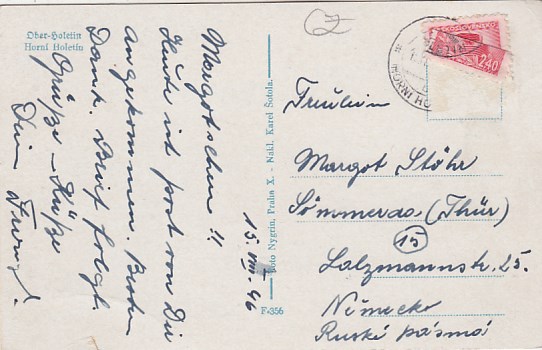 Ober-Holetin
Horní Holetín
Margotschen!!
Heute ist post von Dir
angekommen. Besten
Dank. Brief folgt.
Grüße - Küße
Dein
15. VIII. 46
Foto Nygrin, Praha X. - Nákl. Karel Šotola.
F-356
Fräulein
Margot Stöhr
Sömmerda (Thür)
15
Salzmannstr. 25.
Německo
Ruské pásmo
2·40